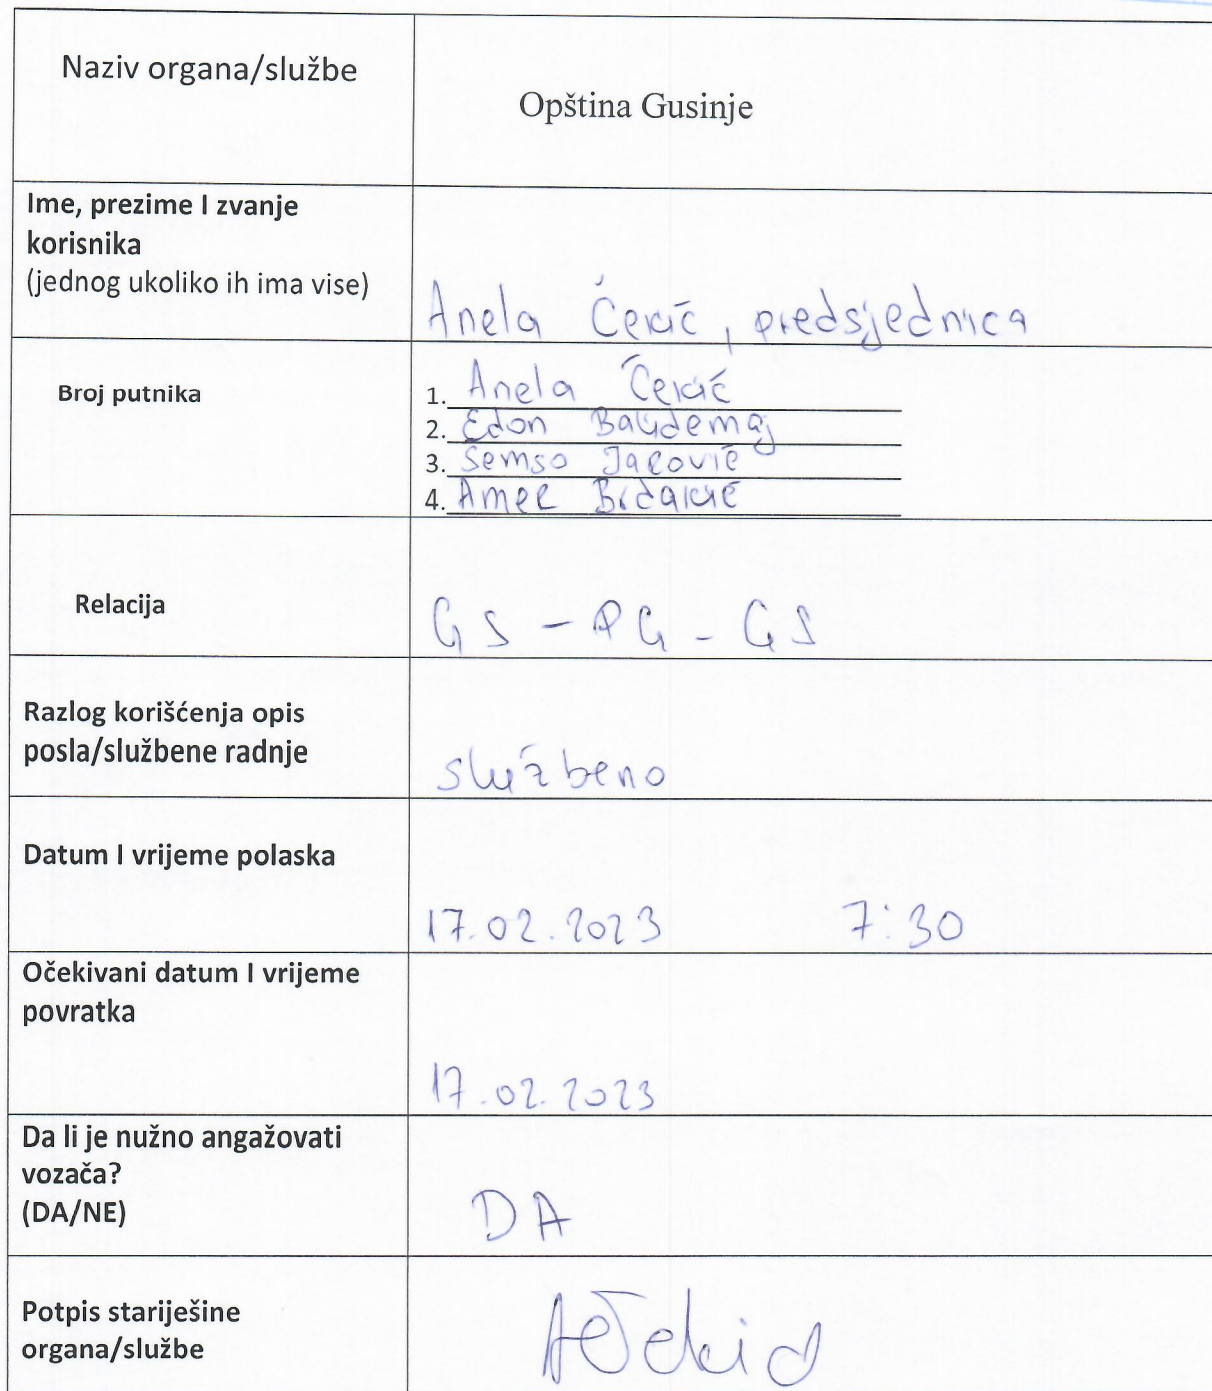 Naziv organa/službe
Opština Gusinje
Ime, prezime I zvanje
korisnika
(jednog ukoliko ih ima vise)
Anela Čekić, predsjednica
Broj putnika
1. Anela Čekić
2. Edon
3. Semso Jarović
4. Amer Brdakić
Relacija
GS - PG - GS
Razlog korišćenja opis
posla/službene radnje
službeno
Datum I vrijeme polaska
17.02.2023 7:30
Očekivani datum I vrijeme
povratka
17.02.2023
Da li je nužno angažovati
vozača?
(DA/NE)
DA
Potpis starješine
organa/službe
AČekić